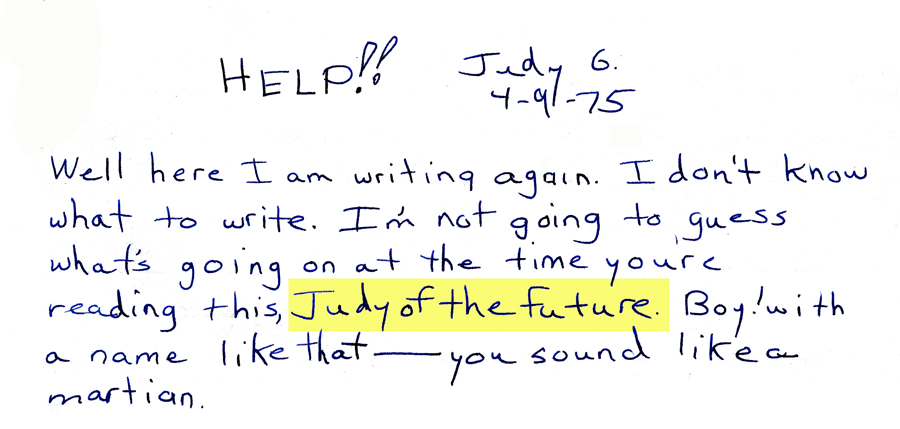 HELP!! Judy G.
4-9-75
Well here I am writing again. I don't know
what to write. I'm not going to guess
what's going on at the time you're
reading this, Judy of the future. Boy! with
a name like that—you sound like a
martian.